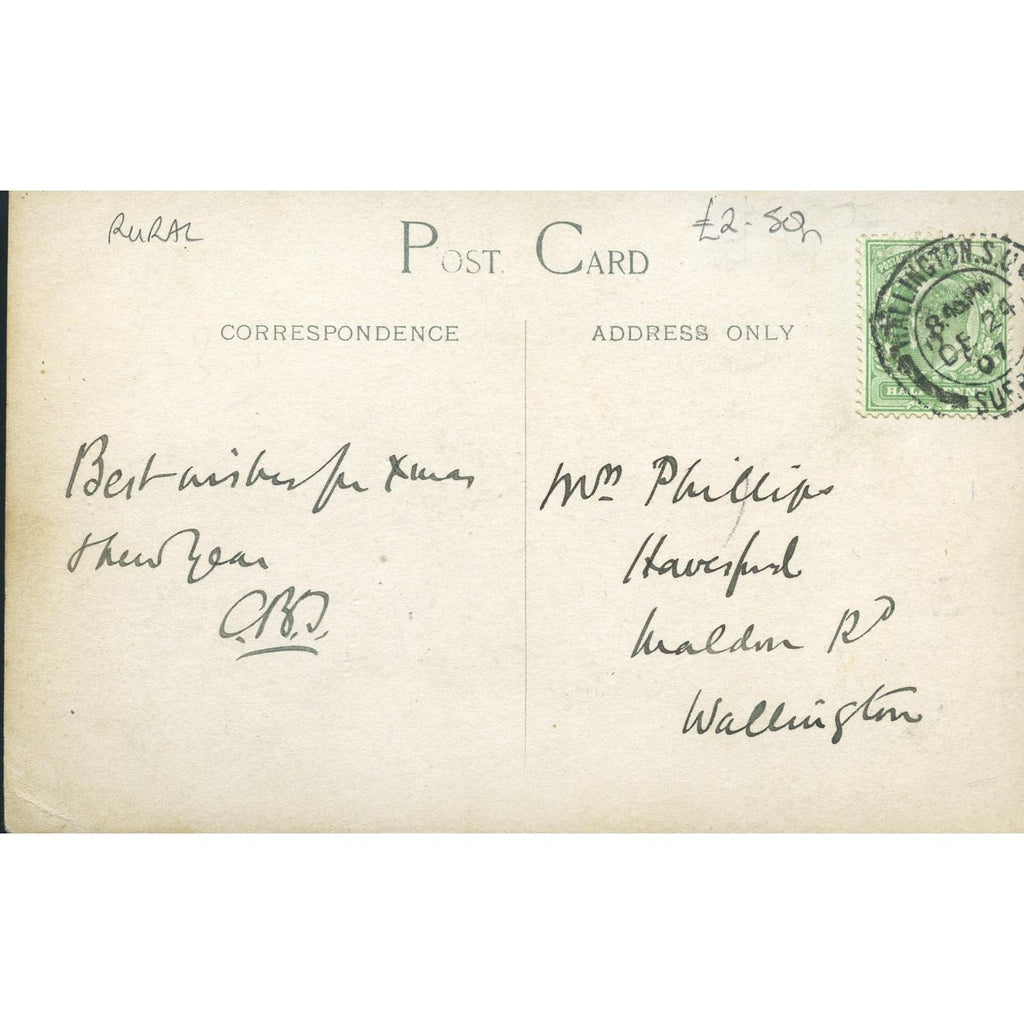 RURAL
£2-50p
POST CARD
CORRESPONDENCE
ADDRESS ONLY
WALLINGTON.S.O
8.45PM
DE 24
07
HALFPENNY
Best wishes for Xmas
& New Year
C.B.J.
Mrs Phillips
Haverford
Maldon Rd
Wallington